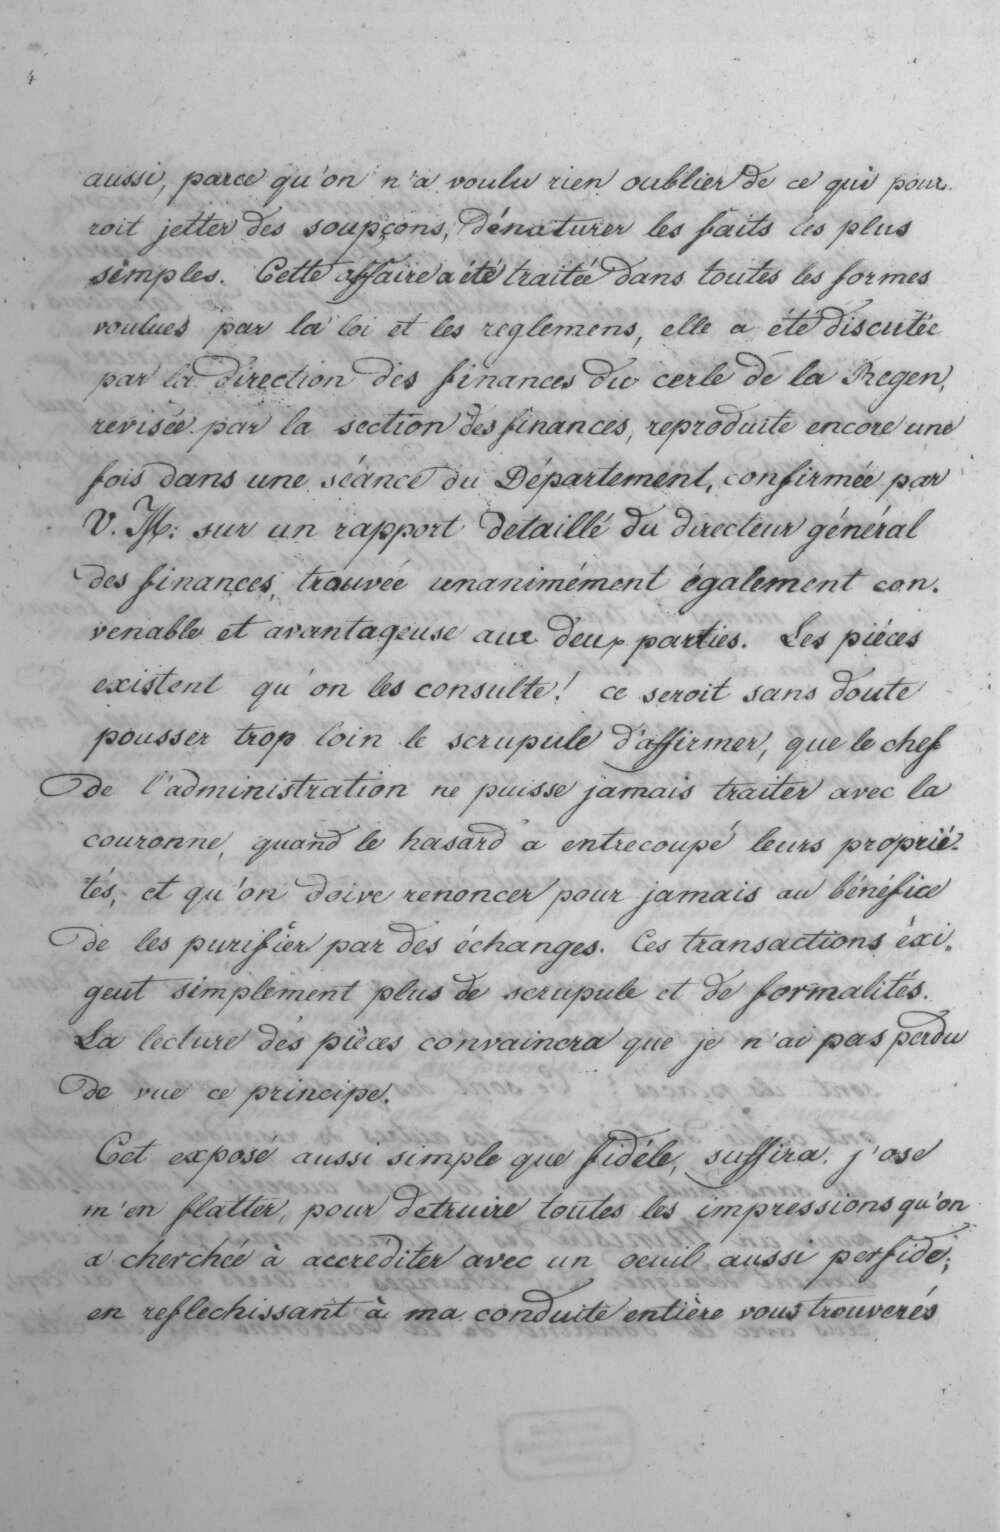 aussi, parce qu'on n'a voulu rien oublier de ce qui pour
roit jetter des soupçons, dénaturer les faits les plus
simples. Cette affaire a été traitée dans toutes les formes
voulues par la loi et les reglemens, elle a été discutée
par la direction des finances du cerle de la Regen,
revisée par la section des finances, reproduite encore une
fois dans une séance du Département, confirmée par
V. M: sur un rapport detaillé du directeur général
des finances, trouvée unanimément également con.
venable et avantageuse aux deux parties. Les piéces
existent qu'on les consulte! ce seroit sans doute
pousser trop loin le scrupule d'affirmer, que le chef
de l'administration ne puisse jamais traiter avec la
couronne, quand le hasard a entrecoupé leurs proprié-
tés, et qu'on doive renoncer pour jamais au bénéfice
de les purifier par des échanges. Ces transactions éxi„
gent simplement plus de scrupule et de formalités.
La lecture des pièces convaincra que je n'ai pas perdu
de vue ce principe.
Cet exposé aussi simple que fidéle, suffira, j'ose
m'en flatter, pour detruire toutes les impressions qu'on
a cherchée à accréditer avec un oeuil aussi perfide;
en reflechissant à ma conduite entière vous trouverés